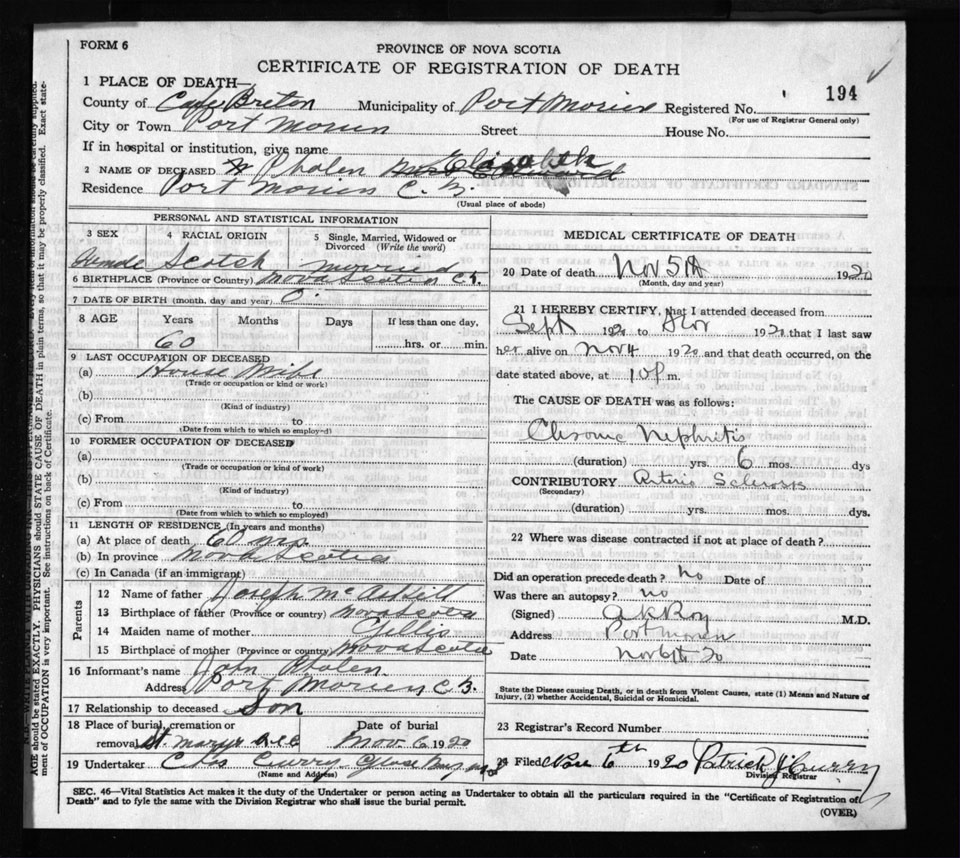 FORM 6
PROVINCE OF NOVA SCOTIA
CERTIFICATE OF REGISTRATION OF DEATH
194
1 PLACE OF DEATH
County of Cape Breton Municipality of Port Morien Registered No.
(For use of Registrar General only)
City or Town Port Morien Street House No.
If in hospital or institution, give name
Elizabeth
2 NAME OF DECEASED Phalen Mrs Edward
Residence Port Morien C. B.
(Usual place of abode)
PERSONAL AND STATISTICAL INFORMATION
3 SEX 4 RACIAL ORIGIN 5 Single, Married, Widowed or Divorced (Write the word)
Female Scotch Married
6 BIRTHPLACE (Province or Country) Nova Scotia C. B.
7 DATE OF BIRTH (month, day and year)
8 AGE Years Months Days If less than one day,
60 hrs. or min.
9 LAST OCCUPATION OF DECEASED
(a) House Wife
(Trade or occupation or kind or work)
(b)
(Kind of industry)
(c) From to
(Date from which to which so employed)
10 FORMER OCCUPATION OF DECEASED
(a)
(Trade or occupation or kind of work)
(b)
(Kind of industry)
(c) From to
(Date from which to which so employed)
11 LENGTH OF RESIDENCE (In years and months)
(a) At place of death 60 yrs
(b) In province Nova Scotia
(c) In Canada (if an immigrant)
Parents
12 Name of father Joseph
13 Birthplace of father (Province or country) Nova Scotia
14 Maiden name of mother Gillis
15 Birthplace of mother (Province or country) Nova Scotia
16 Informant's name John Phalen
Address Port Morien C B.
17 Relationship to deceased Son
18 Place of burial, cremation or Date of burial
removal St. Marys Nov. 6 1920
19 Undertaker Chas Curry Glace Bay
(Name and Address)
MEDICAL CERTIFICATE OF DEATH
20 Date of death Nov 5th 1920
(Month, day and year)
21 I HEREBY CERTIFY, that I attended deceased from
Sept 1920 to Nov 1920 that I last saw
her alive on Nov 4 1920 and that death occurred, on the
date stated above, at 10 P m.
The CAUSE OF DEATH was as follows:
Chronic Nephritis
(duration) yrs. 6 mos. dys
CONTRIBUTORY Arterio Sclerosis
(Secondary)
(duration) yrs. mos. dys.
22 Where was disease contracted if not at place of death?
Did an operation precede death? no Date of
Was there an autopsy? no
(Signed) M.D.
Address Port Morien
Date Nov 6th 20
State the Disease causing Death, or in death from Violent Causes, state (1) Means and Nature of
Injury, (2) whether Accidental, Suicidal or Homicidal.
23 Registrar's Record Number
24 Filed Nov 6th 1920 Patrick J Curry
Division Registrar
SEC. 46—Vital Statistics Act makes it the duty of the Undertaker or person acting as Undertaker to obtain all the particulars required in the "Certificate of Registration of
Death" and to fyle the same with the Division Registrar who shall issue the burial permit.
(OVER)
AGE should be stated EXACTLY. PHYSICIANS should STATE CAUSE OF DEATH in plain terms, so that it may be properly classified. Exact state-
ment of OCCUPATION is very important. See instructions on back of Certificate.